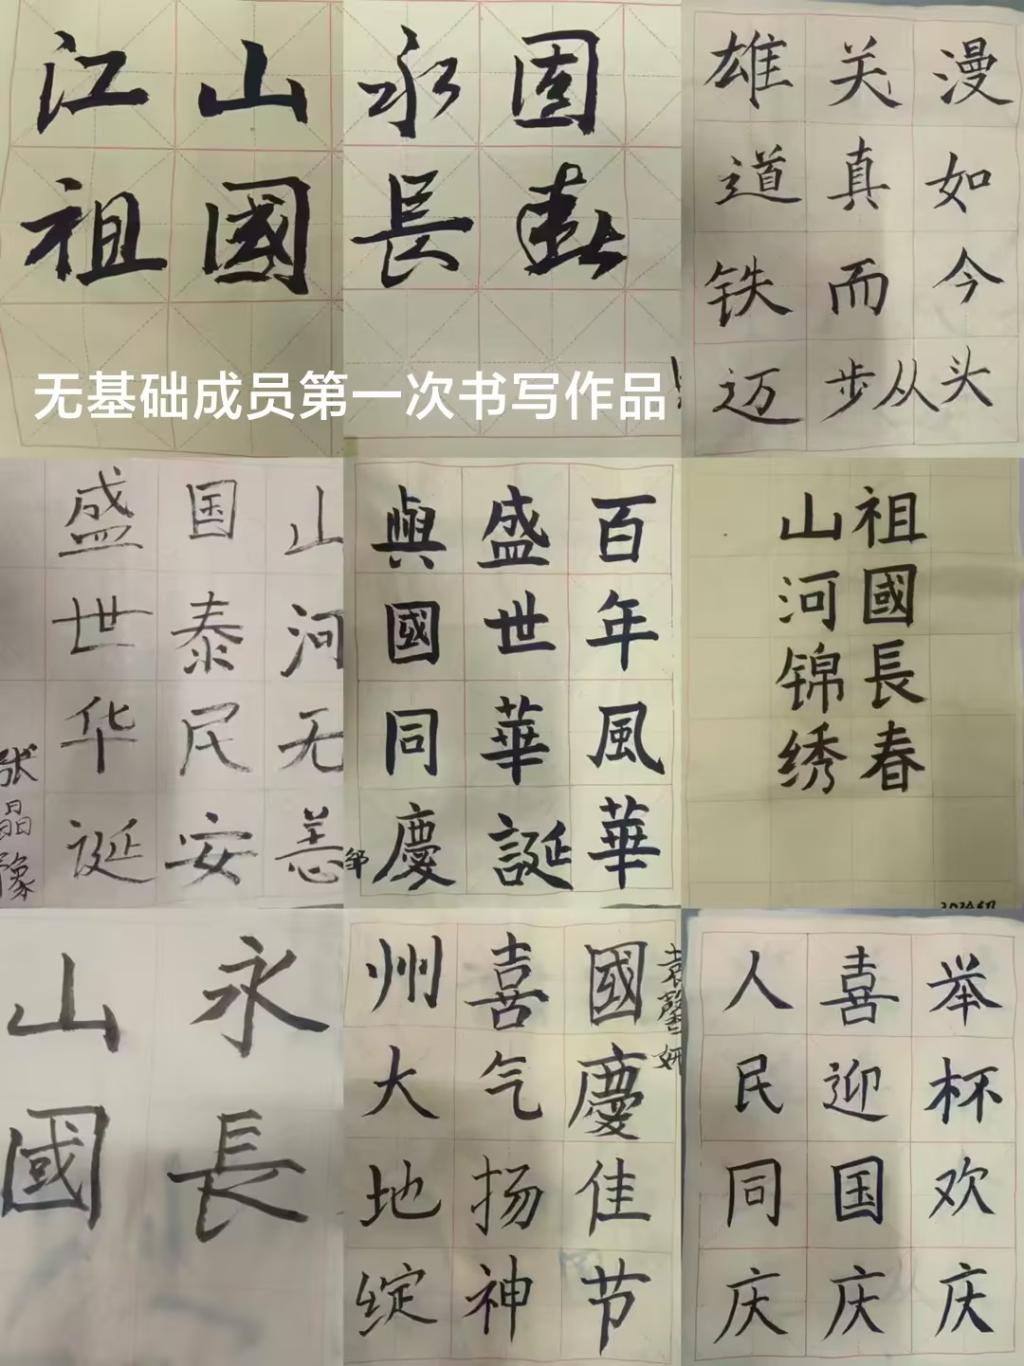 江山永固
祖國長春
无基础成员第一次书写作品
雄关漫
道真如
铁而今
迈步从头
山河无恙
国泰民安
盛世华诞
张晶豫
百年風華
盛世華誕
與國同慶
邹
祖國長春
山河锦绣
山永
國長
國慶佳节
喜气扬神
州大地绽
举杯欢庆
喜迎国庆
人民同庆